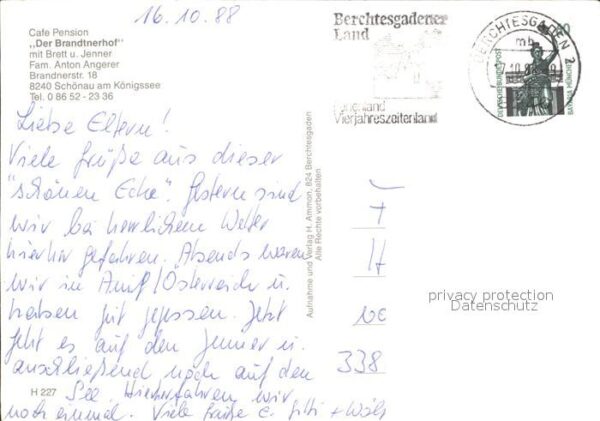 16.10.88
Cafe Pension
„Der Brandtnerhof“
mit Brett u. Jenner
Fam. Anton Angerer
Brandnerstr. 18
8240 Schönau am Königssee
Tel. 0 86 52 - 23 36
Berchtesgadener
Land
Vierjahreszeitenland
BERCHTESGADEN 2
mb
DEUTSCHE BUNDESPOST
BAVARIA MÜNCHEN
Liebe Eltern!
Viele Grüße aus dieser
"schönen Ecke". Gestern sind
wir bei herrlichem Wetter
hierher gefahren. Abends waren
wir in Anif/Österreich u.
haben gut gegessen. Jetzt
geht es auf den Jenner u.
anschließend noch auf den
See. Hierherfahren wir
noch einmal. Viele Grüße
Aufnahme und Verlag H. Ammon, 824 Berchtesgaden
Alle Rechte vorbehalten
338
H 227
privacy protection
Datenschutz